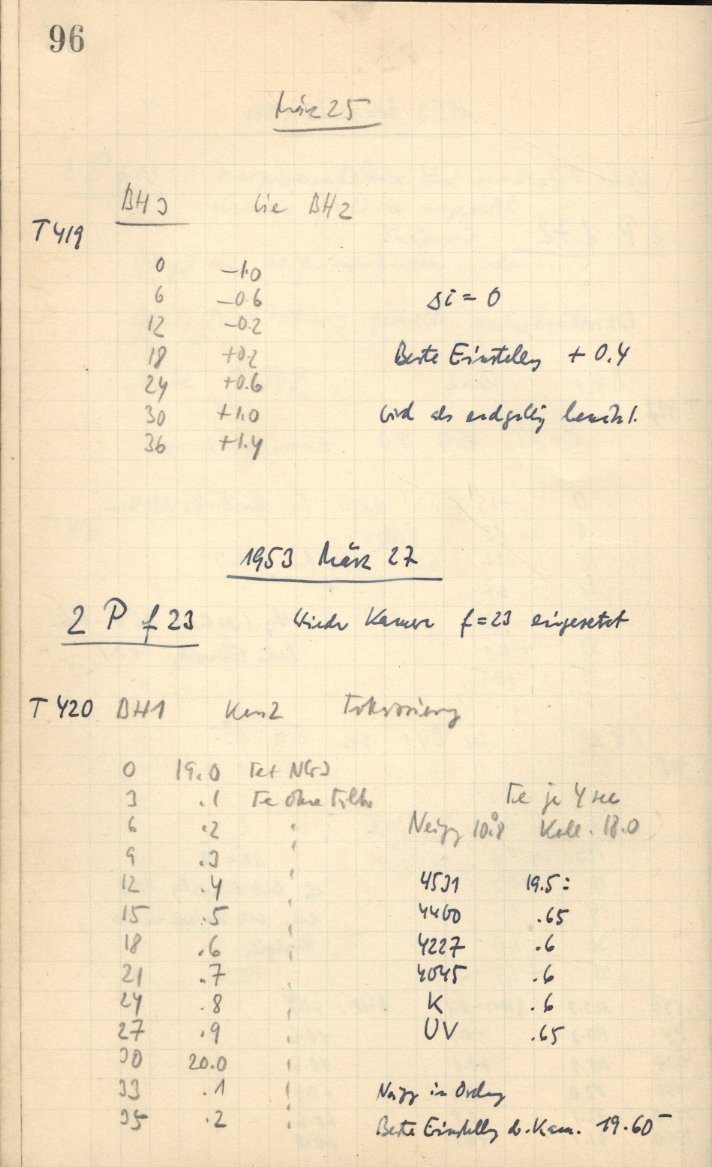 96
März 25
BH3 wie BH2
T 419
0 -1.0
6 -0.6
12 -0.2
18 +0.2
24 +0.6
30 +1.0
36 +1.4
Δi = 0
Beste Einstellg + 0.4
wird als endgültig
1953 März 27
2 P f 23 Wieder Kamera f=23 eingesetzt
T 420 BH1 Fokussierung
0 19.0
3 .1 Fe ohne Filter
6 .2 "
9 .3 "
12 .4 "
15 .5 "
18 .6 "
21 .7 "
24 .8 "
27 .9 "
30 20.0 "
33 .1 "
35 .2 "
Fe je 4 sec
Neigg 10.8 Koll. 18.0
4531 19.5:
4460 .65
4227 .6
4045 .6
K .6
UV .65
Neigg in Ordng
Beste Einstellg d. Kam. 19.60